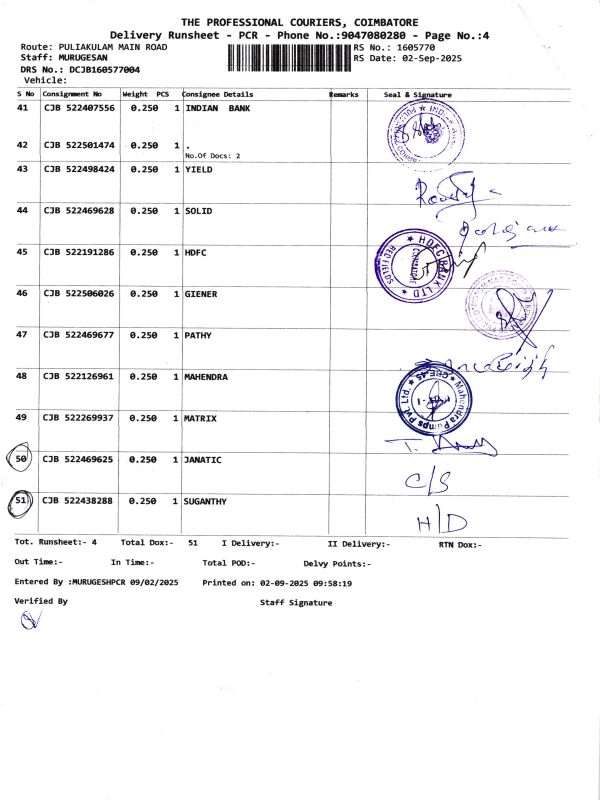 THE PROFESSIONAL COURIERS, COIMBATORE
Delivery Runsheet - PCR - Phone No.:9047080280 - Page No.:4
Route: PULIAKULAM MAIN ROAD RS No.: 1605770
Staff: MURUGESAN RS Date: 02-Sep-2025
DRS No.: DCJB160577004
Vehicle:
S No Consignment No Weight PCS Consignee Details Remarks Seal & Signature
41 CJB 522407556 0.250 1 INDIAN BANK
42 CJB 522501474 0.250 1 .
No.Of Docs: 2
43 CJB 522498424 0.250 1 YIELD
44 CJB 522469628 0.250 1 SOLID
45 CJB 522191286 0.250 1 HDFC
HDFC BANK LTD
RED FIELDS
46 CJB 522506026 0.250 1 GIENER
47 CJB 522469677 0.250 1 PATHY
48 CJB 522126961 0.250 1 MAHENDRA
Mahendra Pumps Pvt. Ltd. CBE-45
49 CJB 522269937 0.250 1 MATRIX
50 CJB 522469625 0.250 1 JANATIC C/S
51 CJB 522438288 0.250 1 SUGANTHY H/D
Tot. Runsheet:- 4 Total Dox:- 51 I Delivery:- II Delivery:- RTN Dox:-
Out Time:- In Time:- Total POD:- Delvy Points:-
Entered By :MURUGESHPCR 09/02/2025 Printed on: 02-09-2025 09:58:19
Verified By Staff Signature